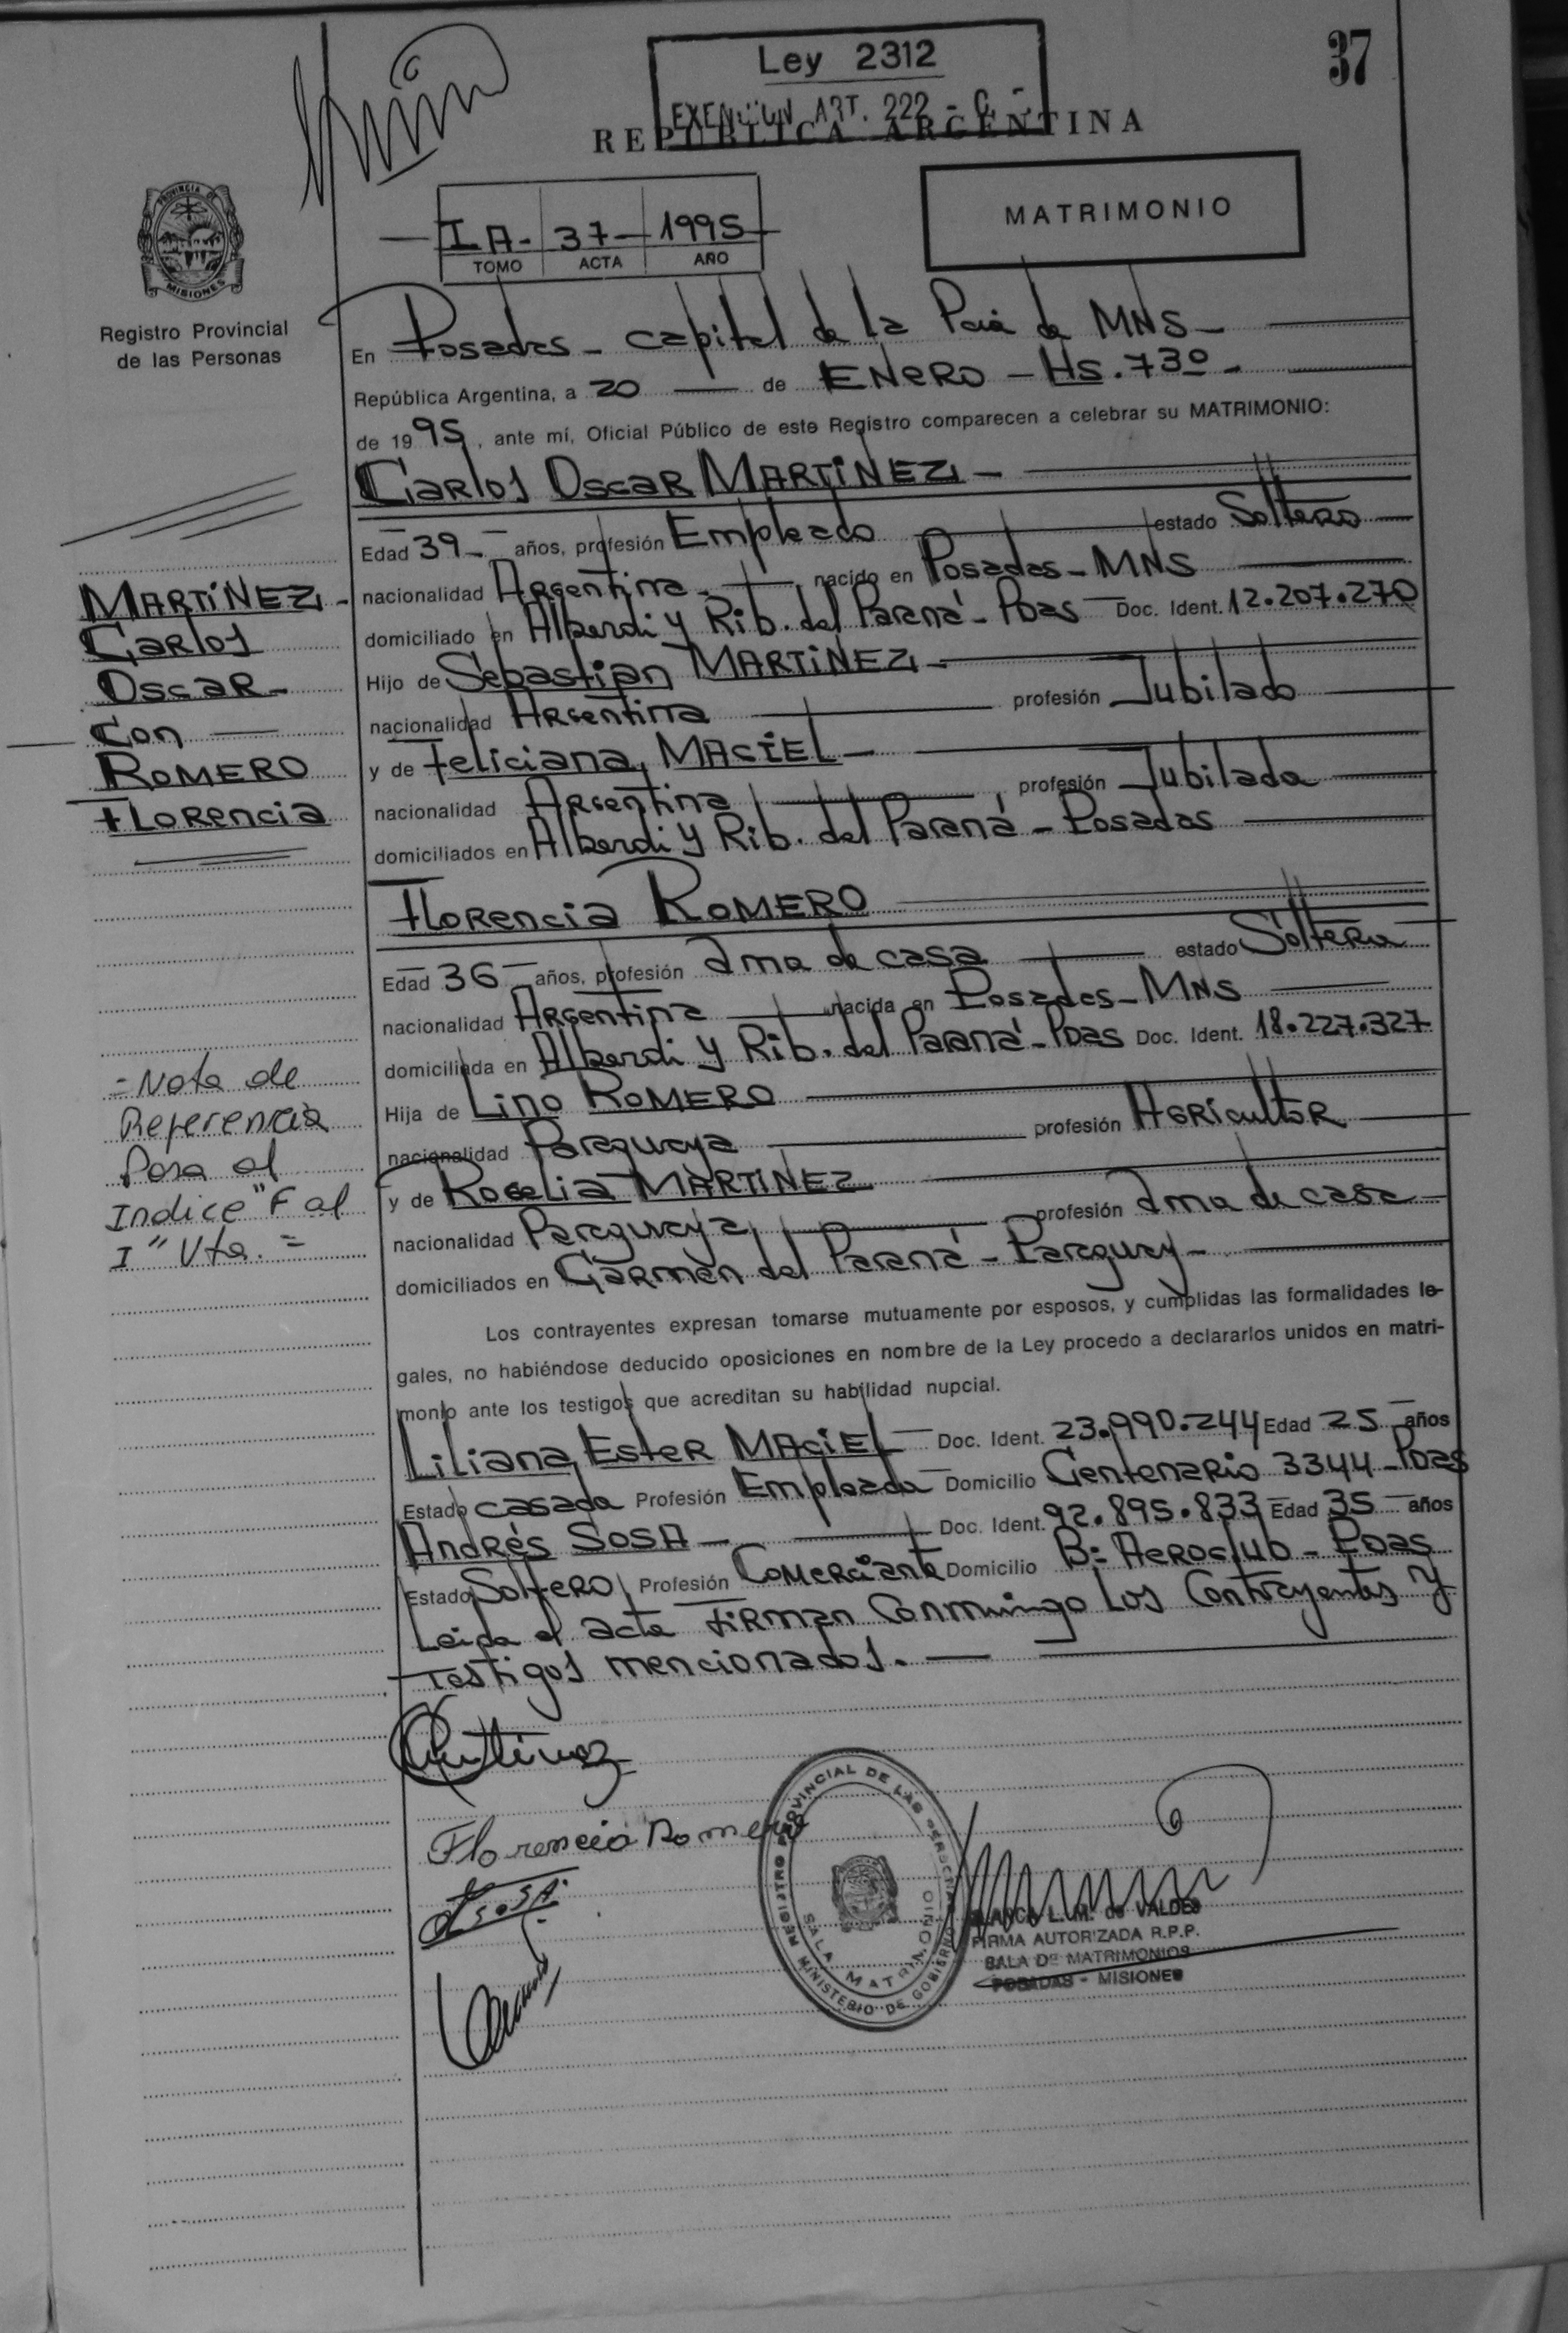 Ley 2312
EXENCION ART. 222 - C -
37
REPUBLICA ARGENTINA
MATRIMONIO
I A - 37 - 1995
TOMO ACTA AÑO
PROVINCIA DE
MISIONES
Registro Provincial
de las Personas
En Posadas - capital de la Pcia de MNS -
República Argentina, a 20 de ENERO - Hs. 730 -
de 1995, ante mí, Oficial Público de este Registro comparecen a celebrar su MATRIMONIO:
Carlos Oscar MARTiNEZ -
Edad 39 - años, profesión Empleado estado Soltero
nacionalidad Argentina - nacido en Posadas - MNS
domiciliado en Alberdi y Rib. del Paraná - Pdas Doc. Ident. 12.207.270
Hijo de Sebastian MARTiNEZ -
nacionalidad Argentina profesión Jubilado
y de Feliciana MACIEL -
nacionalidad Argentina profesión Jubilada
domiciliados en Alberdi y Rib. del Paraná - Posadas
MARTiNEZ -
Carlos
Oscar -
Con
ROMERO
Florencia
Florencia ROMERO
Edad 36 años, profesión ama de casa estado Soltera
nacionalidad Argentina nacida en Posadas - MNS
domiciliada en Alberdi y Rib. del Paraná - Pdas Doc. Ident. 18.227.327
Hija de Lino ROMERO
nacionalidad Paraguaya profesión Agricultor
y de Rogelia MARTINEZ
nacionalidad Paraguaya profesión ama de casa
domiciliados en Carmen del Paraná - Paraguay -
= Nota de
Referencia
Pasa al
Indice "F al
I" Vta. =
Los contrayentes expresan tomarse mutuamente por esposos, y cumplidas las formalidades le-
gales, no habiéndose deducido oposiciones en nombre de la Ley procedo a declararlos unidos en matri-
monio ante los testigos que acreditan su habilidad nupcial.
Liliana Ester MACiEL Doc. Ident. 23.990.244 Edad 25 años
Estado casada Profesión Empleada Domicilio Centenario 3344 - Pdas
Andrés SOSA - Doc. Ident. 92.895.833 Edad 35 años
Estado Soltero Profesión Comerciante Domicilio Bº Aeroclub - Pdas
Leida el acta firman Conmingo Los Contrayentes y
Testigos mencionados. -
Florencia Romero
REGISTRO PROVINCIAL DE LAS PERSONAS
SALA MATRIMONIO
MINISTERIO DE GOBIERNO
BLANCA L. M. de VALDES
FIRMA AUTORIZADA R.P.P.
SALA DE MATRIMONIOS
POSADAS - MISIONES